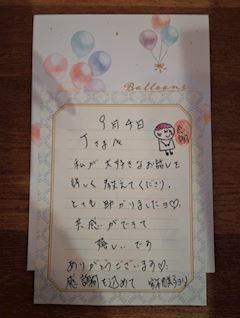 Balloons
9月4日
Tさま
感謝
私が大好きなお話しを
詳しく教えてくださり、
とても助かりました♡
共感ができて
嬉しいです
ありがとうございます♡
感謝を込めて